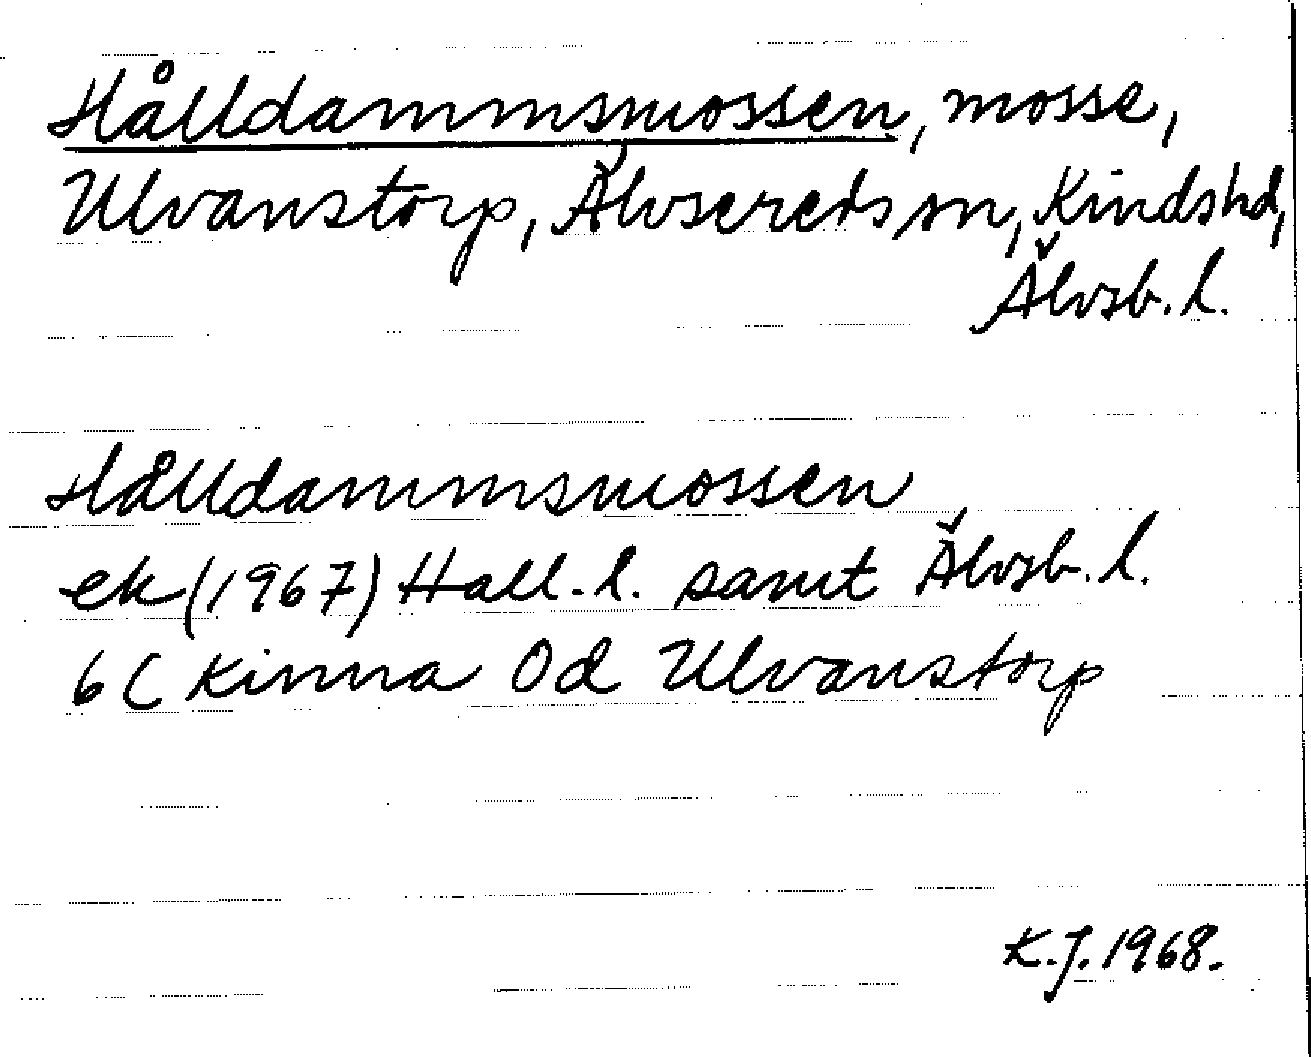 Hålldammsmossen, mosse,
Ulvanstorp, Älvsereds sn, Kindshd,
Älvsb. l.
Hålldammsmossen
ek (1967) Hall. l. samt Älvsb. l.
6C Kinna 0d Ulvanstorp
K.J. 1968.